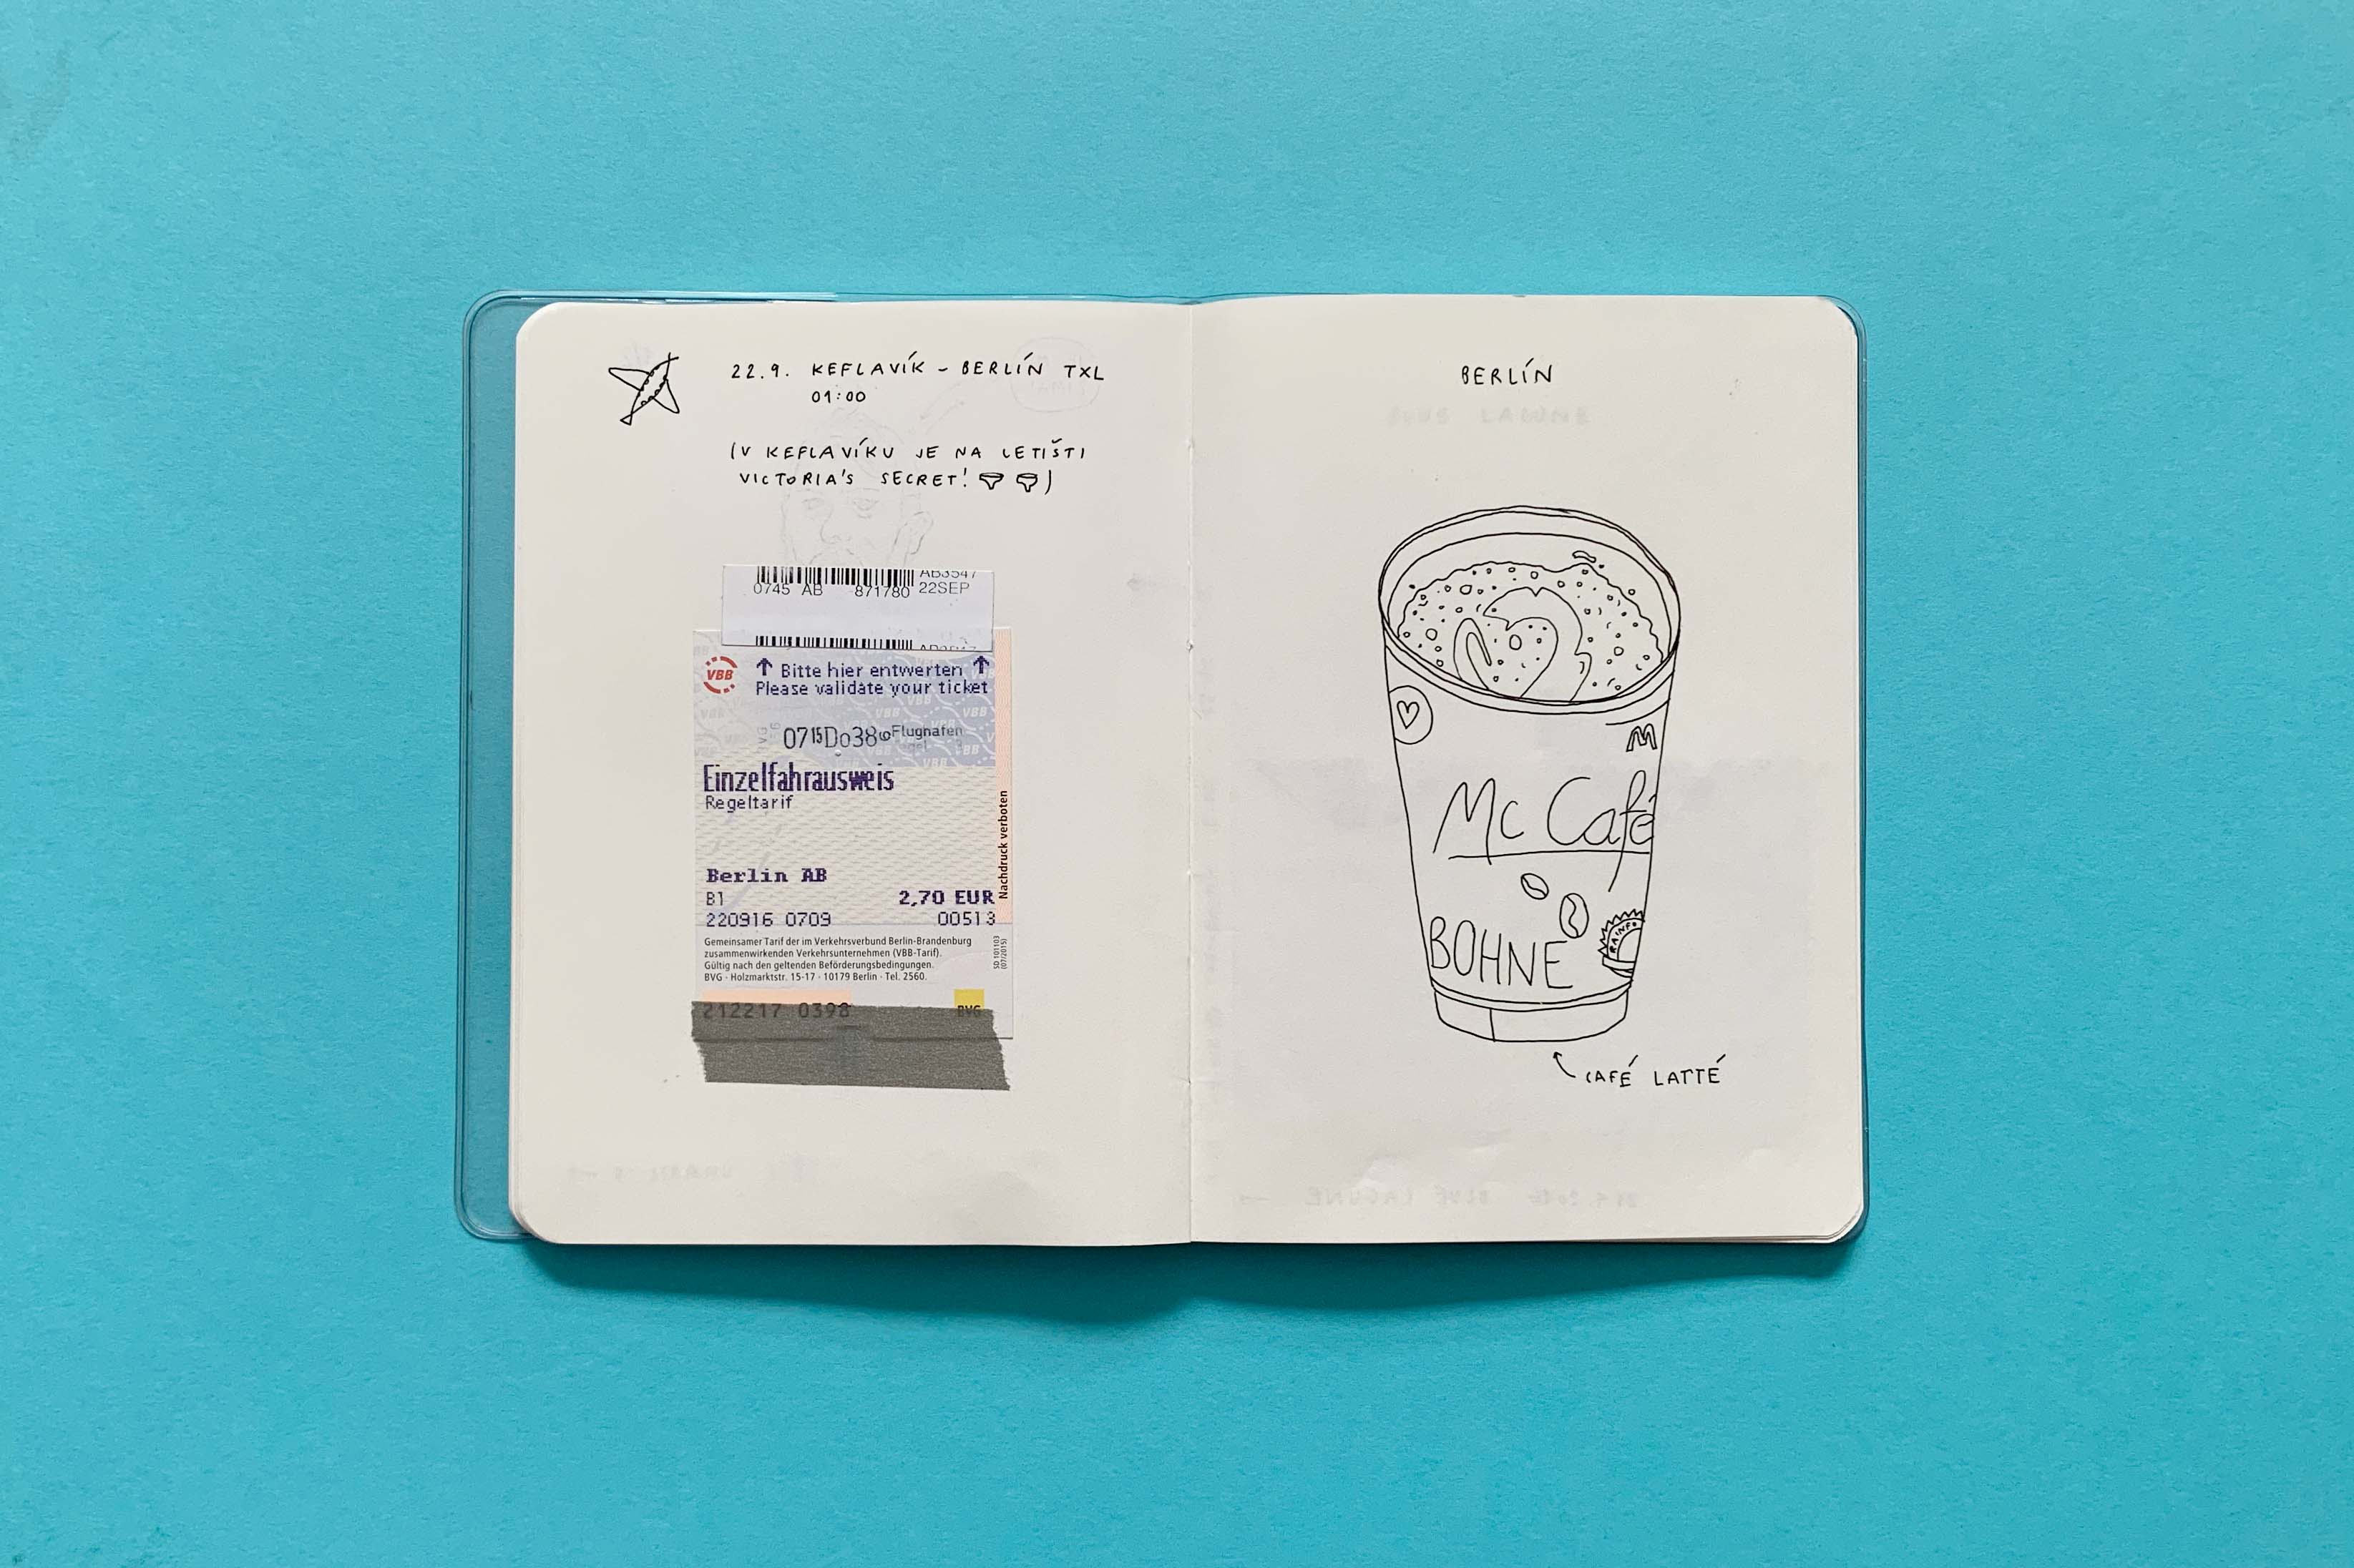 22.9. KEFLAVÍK - BERLÍN TXL
01:00
(V KEFLAVÍKU JE NA LETIŠTI
VICTORIA'S SECRET! )
AB3547
0745 AB 871780 22SEP
VBB
↑ Bitte hier entwerten ↑
Please validate your ticket
07 15 Do38 Flughafen
Einzelfahrausweis
Regeltarif
Berlin AB
B1 2,70 EUR
220916 0709 00513
Nachdruck verboten
Gemeinsamer Tarif der im Verkehrsverbund Berlin-Brandenburg
zusammenwirkenden Verkehrsunternehmen (VBB-Tarif).
Gültig nach den geltenden Beförderungsbedingungen.
BVG · Holzmarktstr. 15-17 · 10179 Berlin · Tel. 2560.
SD 101103
(07/2015)
212217 0398 BVG
BERLÍN
M
Mc Café
BOHNE
RAINFO
CAFÉ LATTÉ